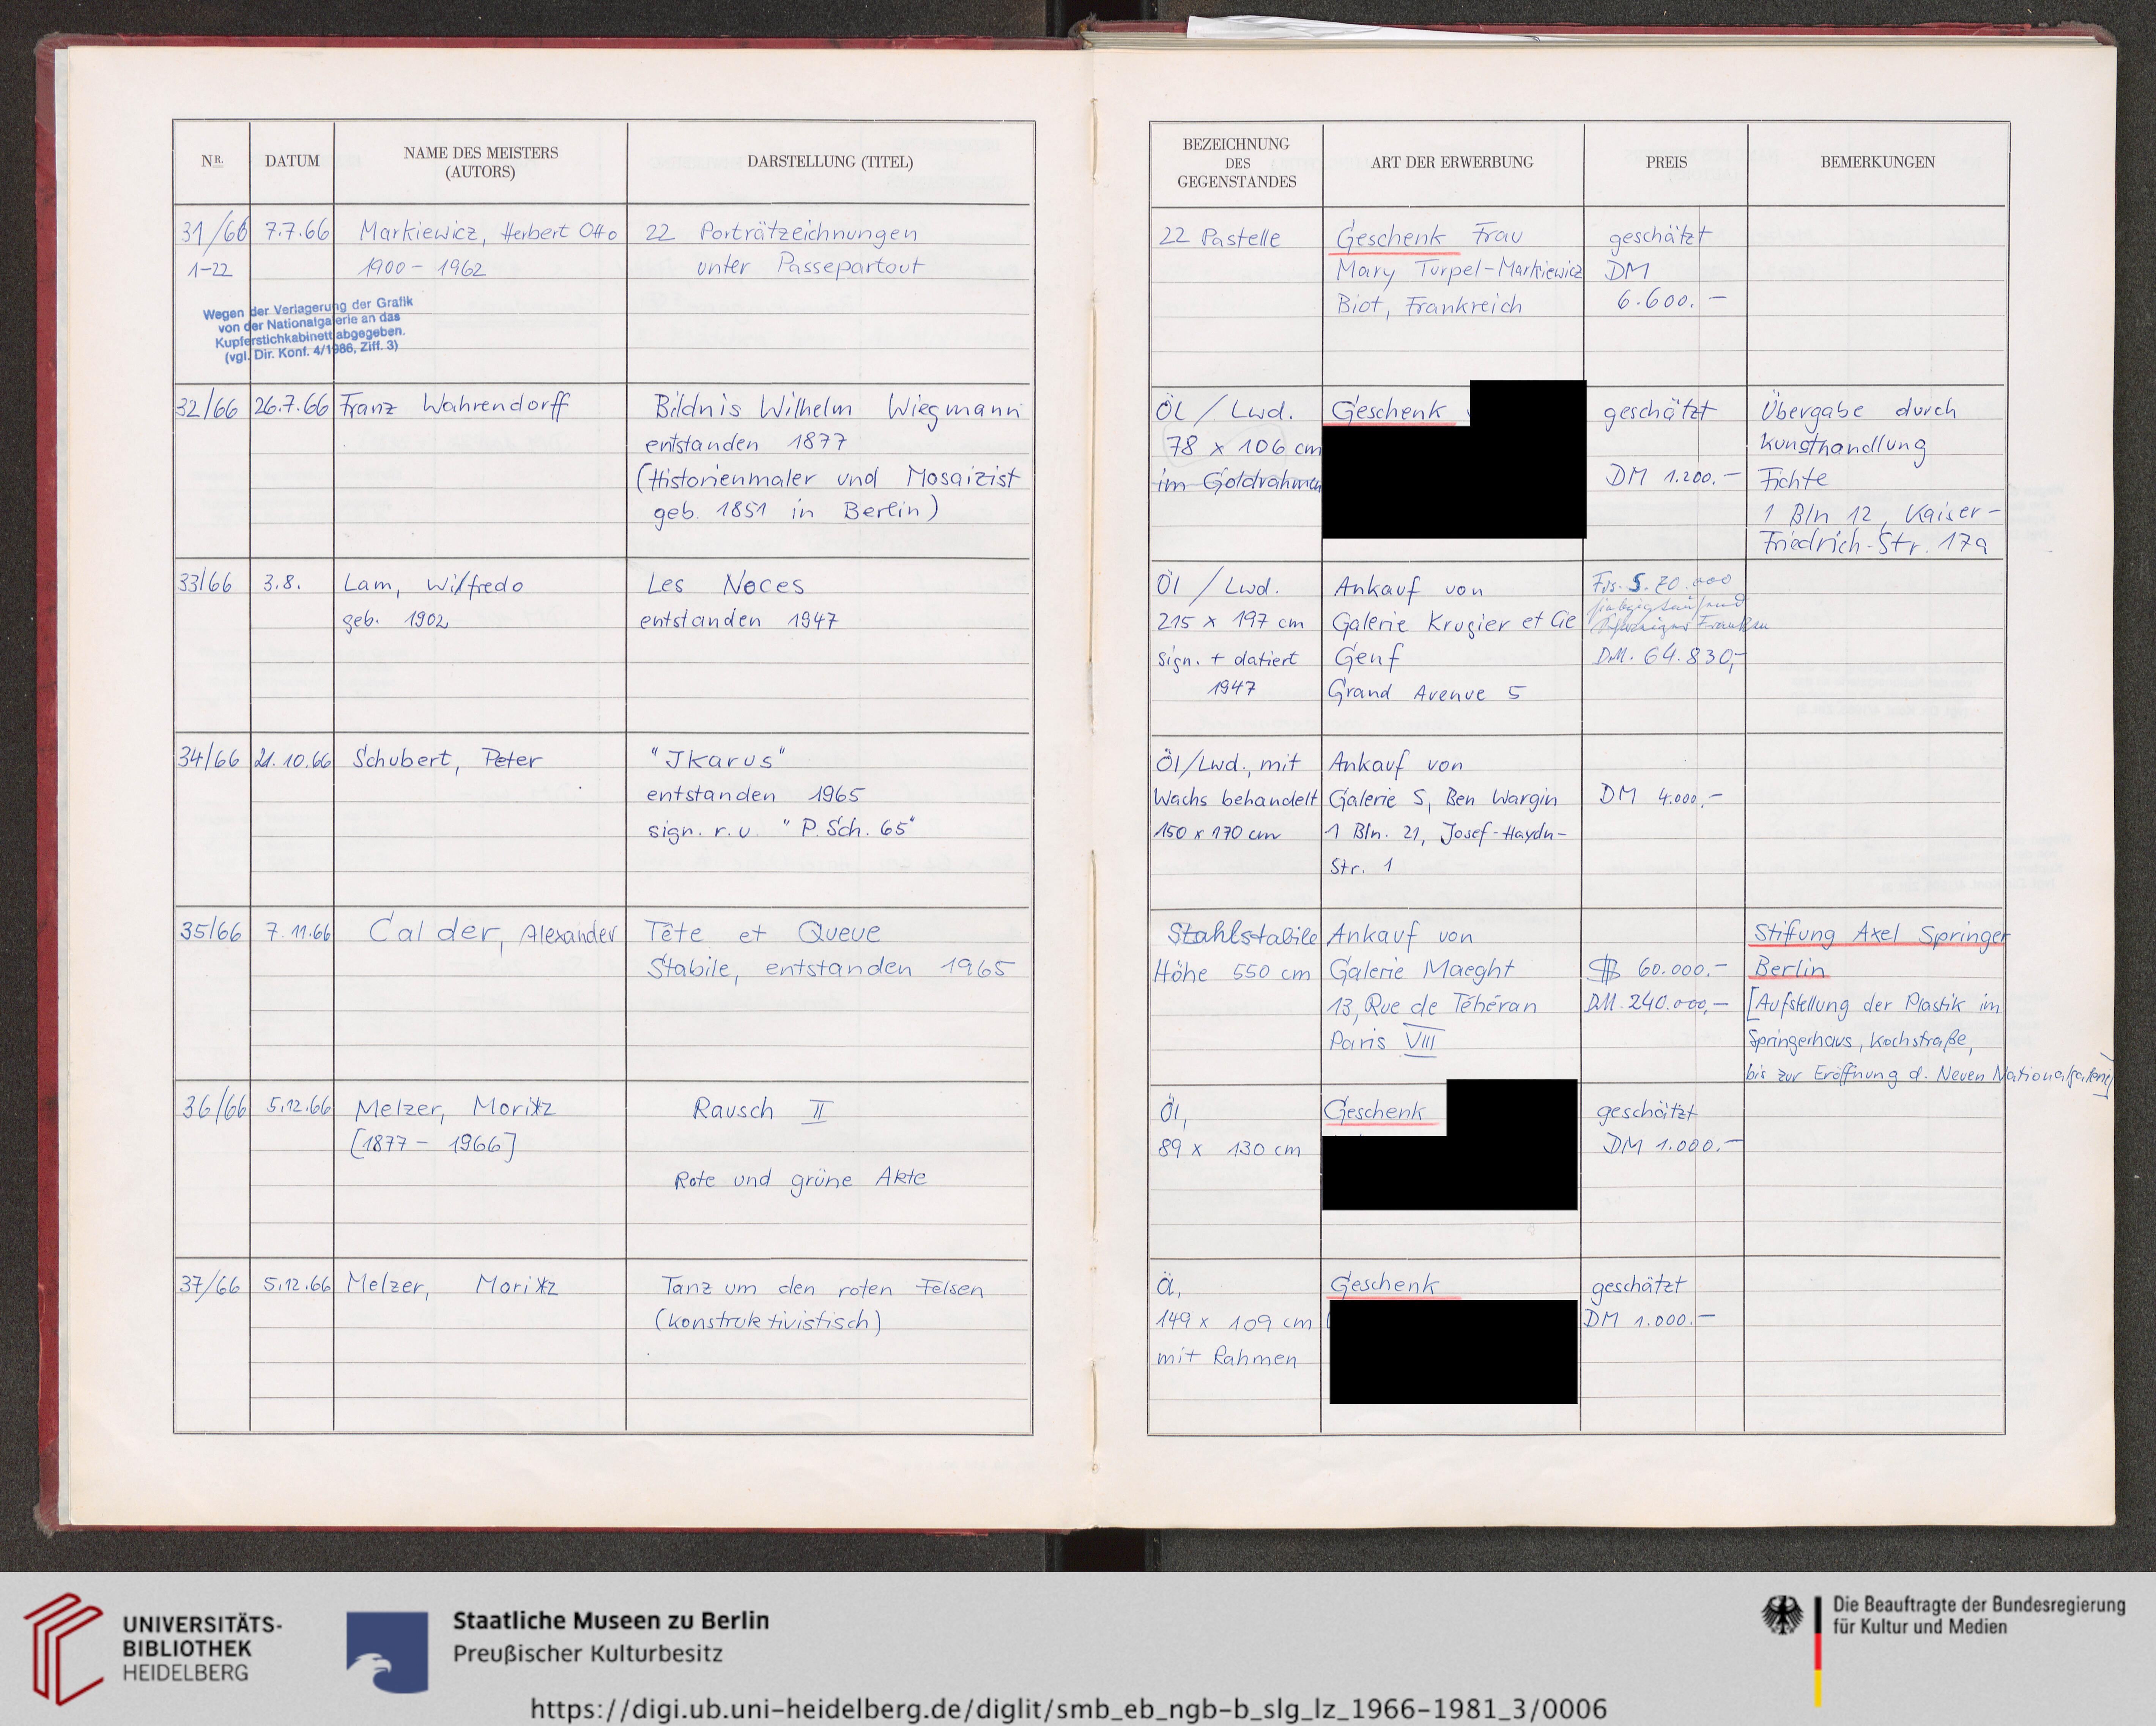 NR.
DATUM
NAME DES MEISTERS
(AUTORS)
DARSTELLUNG (TITEL)
31/66 7.7.66 Markiewicz, Herbert Otto 22 Porträtzeichnungen
1-22 1900 - 1962 unter Passepartout
Wegen der Verlagerung der Grafik
von der Nationalgalerie an das
Kupferstichkabinett abgegeben.
(vgl. Dir. Konf. 4/1986, Ziff. 3)
32/66 26.7.66 Franz Wahrendorff Bildnis Wilhelm Wiegmann
entstanden 1877
(Historienmaler und Mosaizist
geb. 1851 in Berlin)
33/66 3.8. Lam, Wilfredo Les Noces
geb. 1902 entstanden 1947
34/66 21.10.66 Schubert, Peter "Jkarus"
entstanden 1965
sign. r. u. "P. Sch. 65"
35/66 7.11.66 Calder, Alexander Tête et Queue
Stabile, entstanden 1965
36/66 5.12.66 Melzer, Moritz Rausch II
[1877 - 1966]
Rote und grüne Akte
37/66 5.12.66 Melzer, Moritz Tanz um den roten Felsen
(konstruktivistisch)
BEZEICHNUNG
DES
GEGENSTANDES
ART DER ERWERBUNG
PREIS
BEMERKUNGEN
22 Pastelle Geschenk Frau geschätzt
Mary Turpel-Markiewicz DM
Biot, Frankreich 6.600.-
Öl / Lwd. Geschenk geschätzt Übergabe durch
78 x 106 cm Kunsthandlung
im Goldrahmen DM 1.200.- Fichte
1 Bln 12, Kaiser-
Friedrich-Str. 17a
Öl / Lwd. Ankauf von Frs. S. 70.000
215 x 197 cm Galerie Krugier et Cie Franken
sign. + datiert Genf DM. 64.830,-
1947 Grand Avenue 5
Öl/Lwd., mit Ankauf von
Wachs behandelt Galerie S, Ben Wargin DM 4.000.-
150 x 170 cm 1 Bln. 21, Josef-Haydn-
Str. 1
Stahlstabile Ankauf von Stiftung Axel Springer
Höhe 550 cm Galerie Maeght $ 60.000.- Berlin
13, Rue de Téhéran DM. 240.000,- [Aufstellung der Plastik im
Paris VIII Springerhaus, Kochstraße,
bis zur Eröffnung d. Neuen Nationalgalerie]
Öl, Geschenk geschätzt
89 x 130 cm DM 1.000.-
Öl, Geschenk geschätzt
149 x 109 cm DM 1.000.-
mit Rahmen
UNIVERSITÄTS-
BIBLIOTHEK
HEIDELBERG
Staatliche Museen zu Berlin
Preußischer Kulturbesitz
Die Beauftragte der Bundesregierung
für Kultur und Medien
https://digi.ub.uni-heidelberg.de/diglit/smb_eb_ngb-b_slg_lz_1966-1981_3/0006